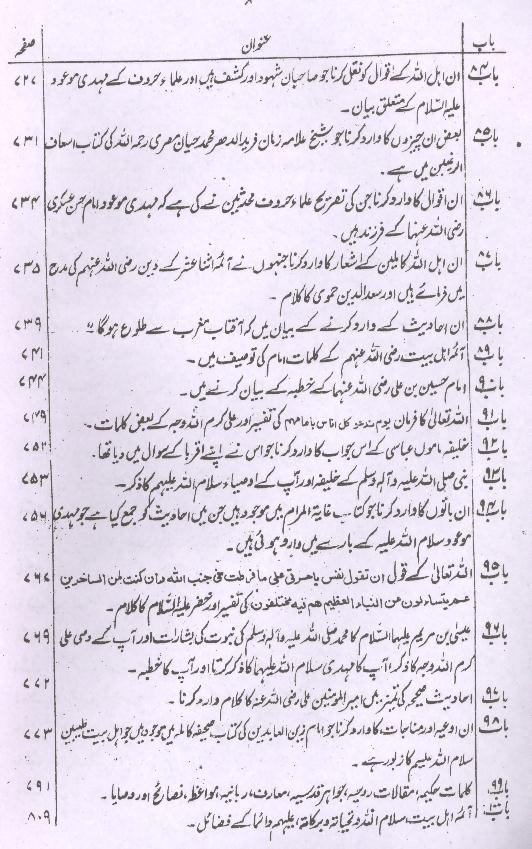 باب عنوان صفحہ
باب ۸۴ ان اہل اللہ کے اقوال کو نقل کرنا جو صاحبان شہود اور کشف ہیں اور علماء حروف کے مہدی موعود ۷۲۷
علیہ السلام کے متعلق بیان ۔
باب ۸۵ بعض ان چیزوں کا وارد کرنا جو شیخ علامہ زمان فرید الدھر محمد صبان مصری رحمہ اللہ کی کتاب اسعاف ۷۳۱
الراغبین میں ہے ۔
باب ۸۶ ان اقوال کا وارد کرنا جن کی تصریح علماء حروف محدثین نے کی ہے کہ مہدی موعود امام حسن عسکری ۷۳۴
رضی اللہ عنہما کے فرزند ہیں ۔
باب ۸۷ ان اہل اللہ کاملین کے اشعار کا وارد کرنا جنہوں نے آئمہ اثنا عشر کے دین رضی اللہ عنہم کی مدح ۷۳۵
میں فرمائے ہیں اور سعد الدین حموی کا کلام ۔
باب ۸۸ ان احادیث کے وارد کرنے کے بیان میں کہ آفتاب مغرب سے طلوع ہوگا ۷۳۹
باب ۸۹ آئمہ اہل بیت رضی اللہ عنہم کے کلمات امام کی توصیف میں ۔ ۷۴۱
باب ۹۰ امام حسین بن علی رضی اللہ عنہما کے خطبہ کے بیان کرنے میں ۔ ۷۴۴
باب ۹۱ اللہ تعالیٰ کا فرمان یوم ندعو کل اناس بامامھم کی تفسیر اور علی کرم اللہ وجہ کے بعض کلمات ۔ ۷۴۹
باب ۹۲ خلیفہ مامون عباسی کے اس جواب کا وارد کرنا جو اس نے اپنے اقربا کے سوال میں دیا تھا ۔ ۷۵۲
باب ۹۳ نبی صلی اللہ علیہ و آلہ وسلم کے خلیفہ اور آپ کے اوصیاء سلام اللہ علیہم کا ذکر ۔ ۷۵۳
باب ۹۴ ان باتوں کا وارد کرنا جو کتاب غایۃ المرام میں موجود ہیں جن میں احادیث کو جمع کیا ہے جو مہدی ۷۵۶
موعود سلام اللہ علیہ کے بارے میں وارد ہوئی ہیں ۔
باب ۹۵ اللہ تعالیٰ کے قول ان تقول نفس یاحسرتی علی ما فرطت فی جنب اللہ وان کنت لمن الساخرین ۷۶۷
عم یتساءلون عن النباء العظیم ھم فیہ مختلفون کی تفسیر اور خضر علیہ السلام کا کلام ۔
باب ۹۶ عیسیٰ بن مریم علیہما السلام کا محمد صلی اللہ علیہ و آلہ وسلم کی نبوت کی بشارات اور آپ کے وصی علی ۷۶۹
کرم اللہ وجہ کا ذکر ؛ آپ کا مہدی سلام اللہ علیہما کا ذکر کرنا اور آپ کا خطبہ ۔
باب ۹۷ احادیث صحیحہ کی تمیز میں امیر المومنین علی رضی اللہ عنہ کا کلام وارد کرنا ۔ ۷۷۲
باب ۹۸ ان ادعیہ اور مناجات کا وارد کرنا جو امام زین العابدین کی کتاب صحیفہ کاملہ میں موجود ہیں جو اہل بیت طیبین ۷۷۳
سلام اللہ علیہم کا زبور ہے ۔
باب ۹۹ کلمات حکیمہ ، مقالات روحیہ ، جواہر قدسیہ ، معارف ربانیہ مواعظ ، نصائح اور وصایا ۔ ۷۹۱
باب ۱۰۰ آئمہ اہل بیت ، سلام اللہ و تحیاتہ و برکاتہ علیہم دائما کے فضائل ۔ ۸۰۹